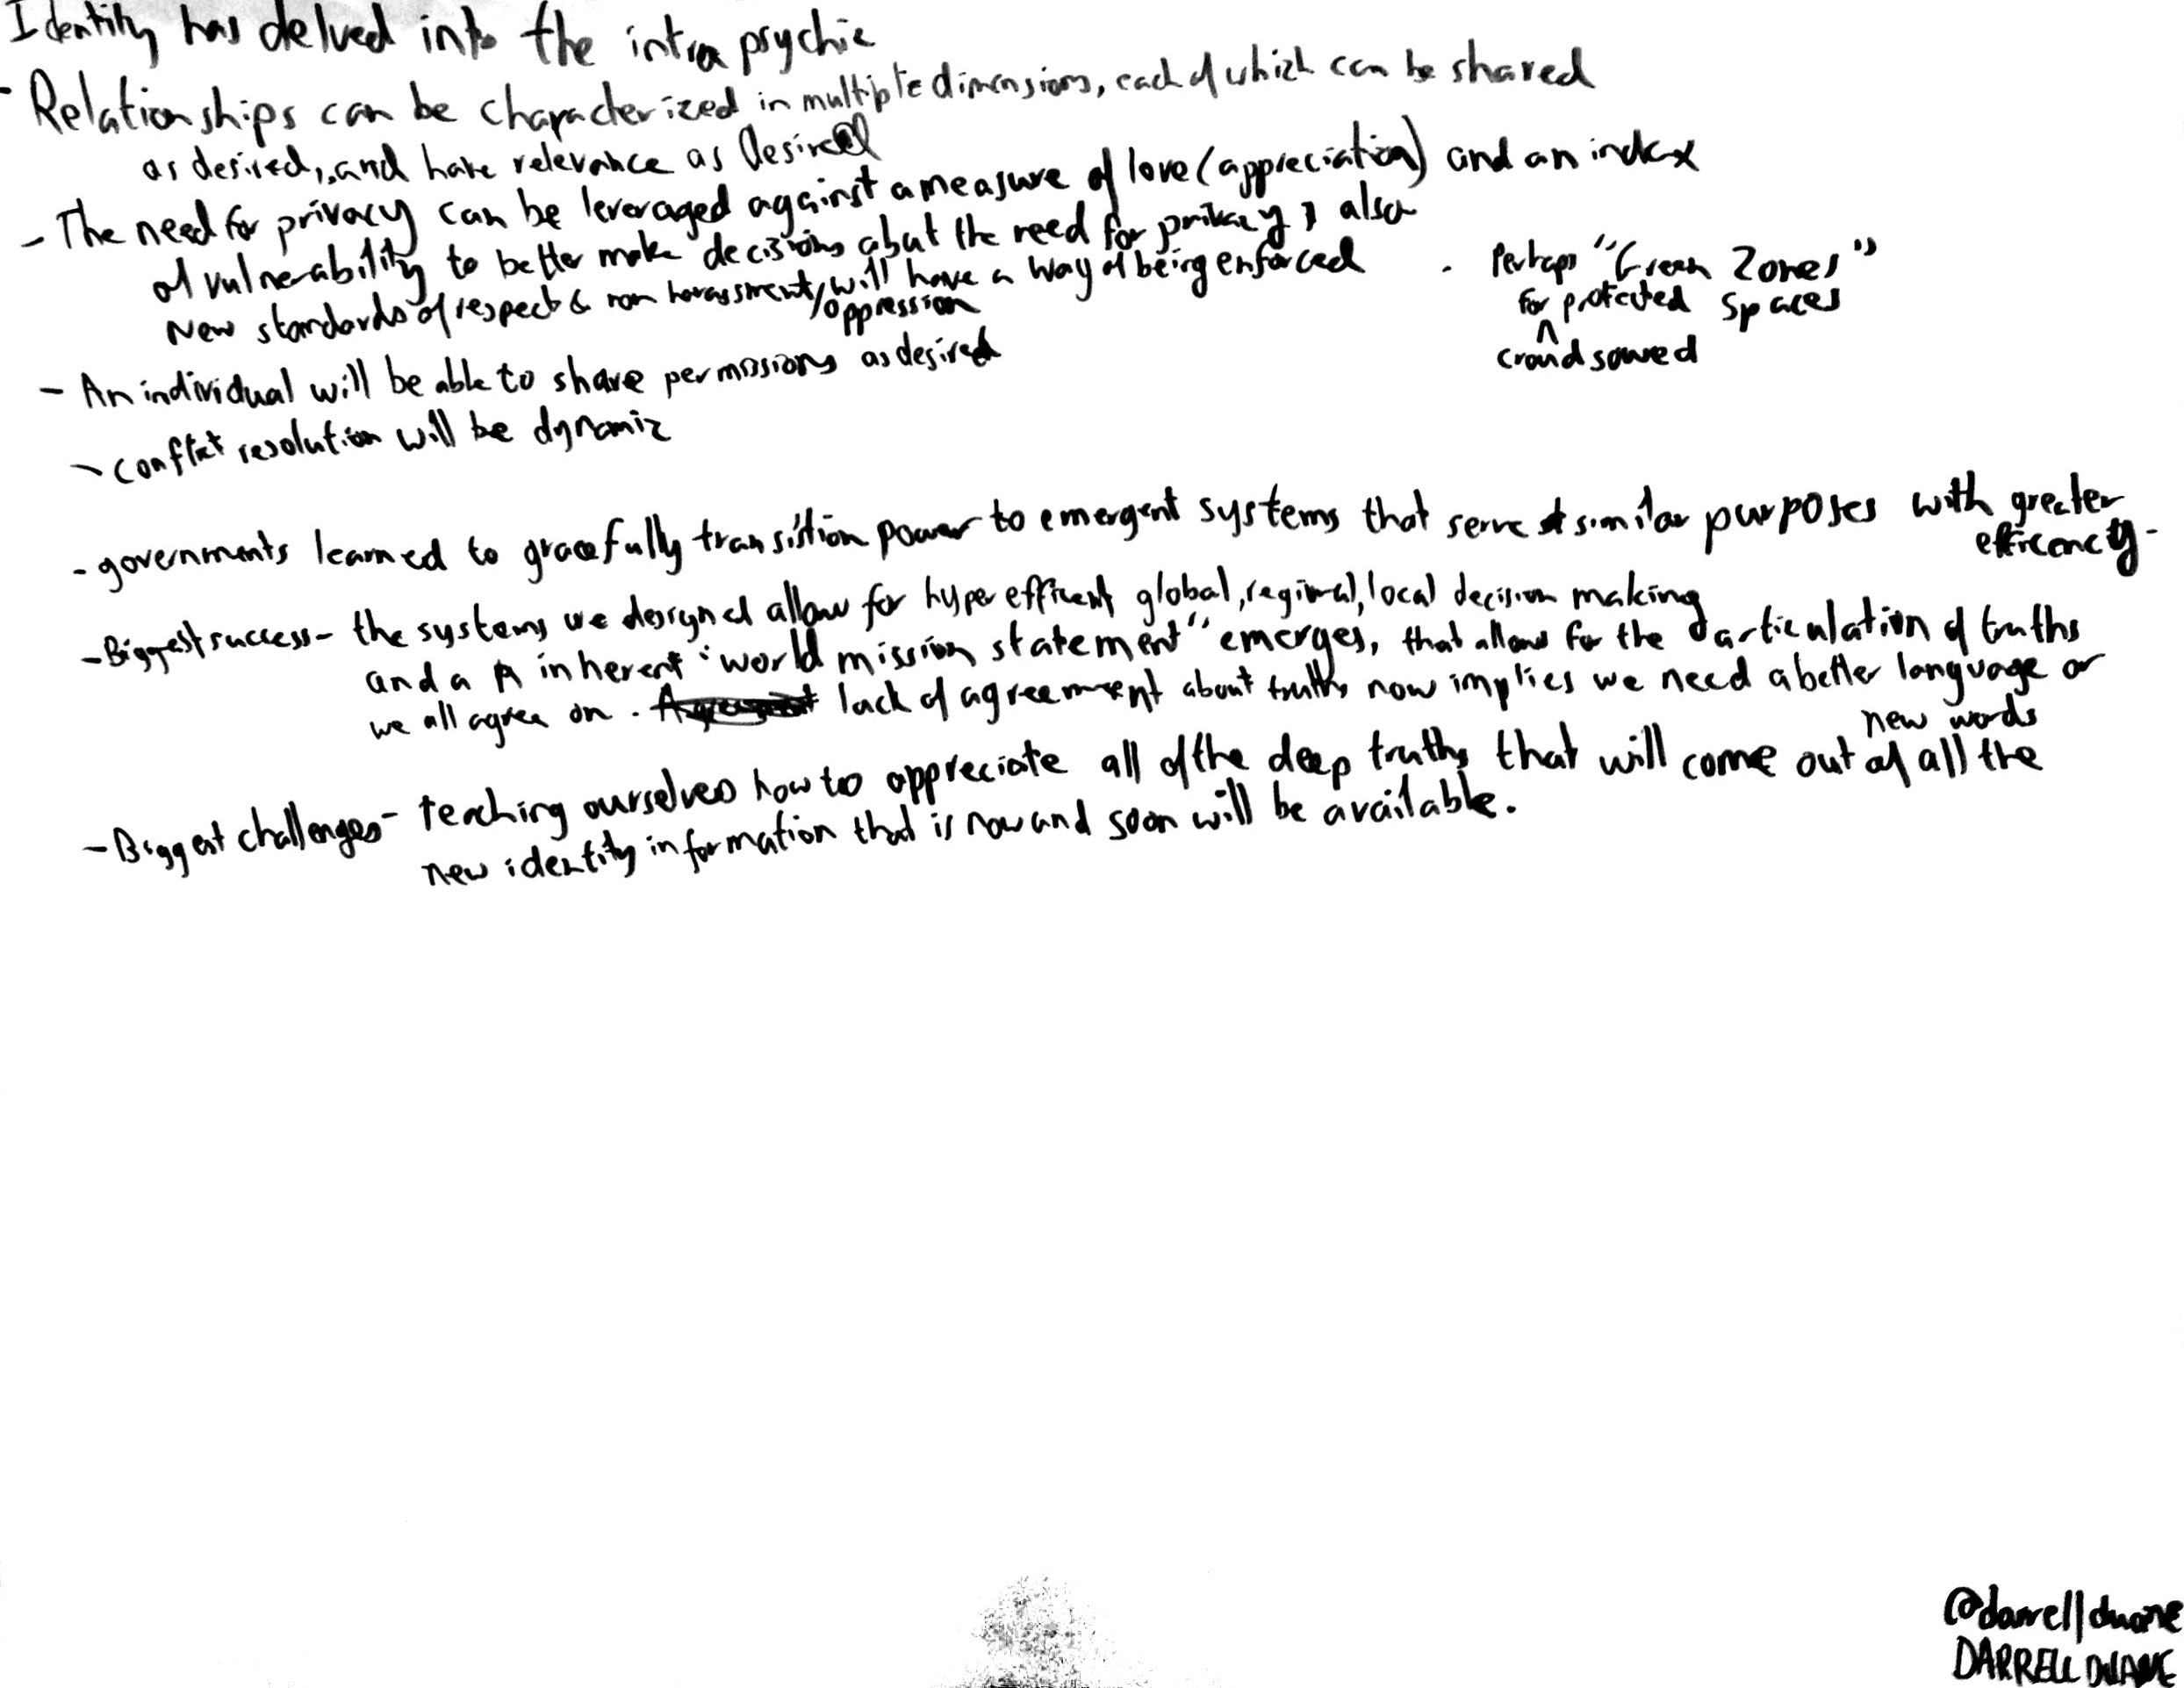 Identity has delved into the intra psychic
- Relationships can be characterized in multiple dimensions, each of which can be shared
as desired, and have relevance as desired
- The need for privacy can be leveraged against a measure of love (appreciation) and an index
of vulnerability to better make decisions about the need for privacy, also
New standards of respect & non harassment/oppression will have a way of being enforced
. Perhaps "Green Zones"
for protected spaces
^
crowdsowed
- An individual will be able to share permissions as desired
- conflict resolution will be dynamic
- governments learned to gracefully transistion power to emergent systems that serve similar purposes with greater
efficency-
- Biggest success- the systems we designed allow for hyper efficent global, regional, local decision making
and a inherent "world mission statement" emerges, that allows for the articulation of truths
we all agree on. lack of agreement about truths now implies we need a better language or
new words
- Biggest challenges- teaching ourselves how to appreciate all of the deep truths that will come out of all the
new identity information that is now and soon will be available.
@darrellduane
DARRELL DUANE